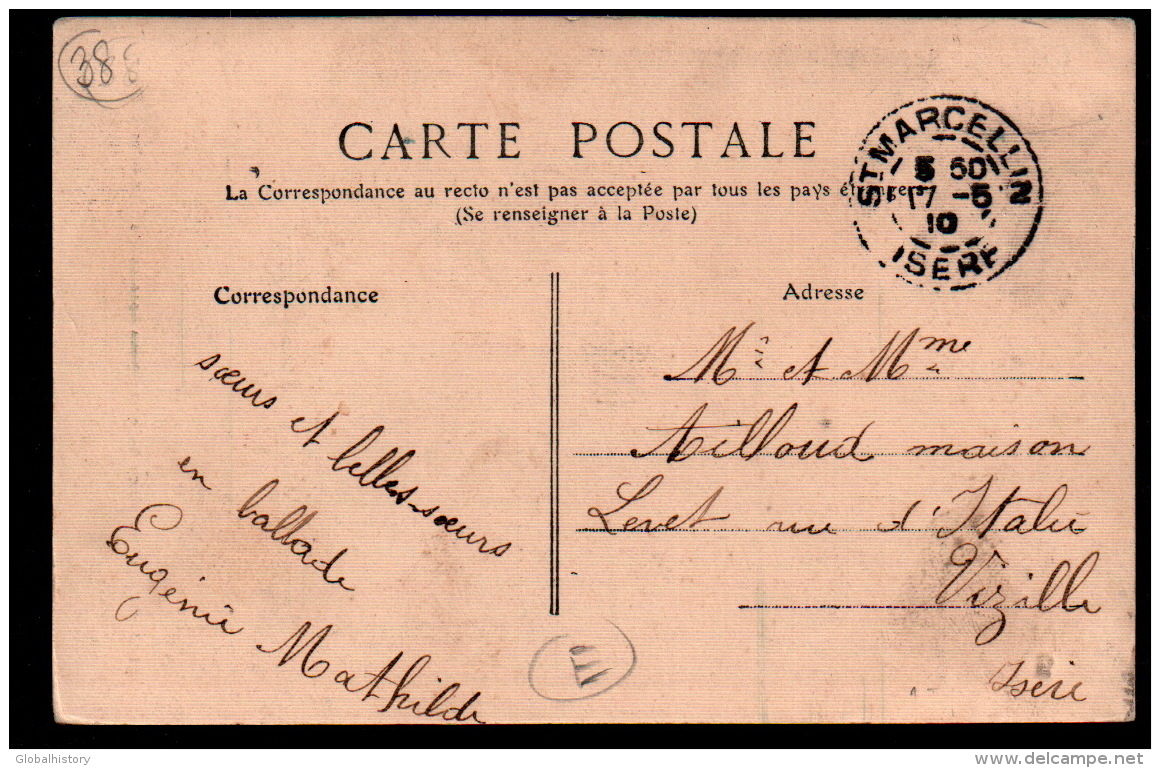 38
CARTE POSTALE
La Correspondance au recto n'est pas acceptée par tous les pays étrangers
(Se renseigner à la Poste)
ST MARCELLIN
17 -5
10
ISERE
Correspondance
sœurs et belles-sœurs
en ballade
Eugénie Mathilde
Adresse
Mr et Mme
Ailloud maison
Levet rue d'Italie
Vizille
Isère
Globalhistory
www.delcampe.net